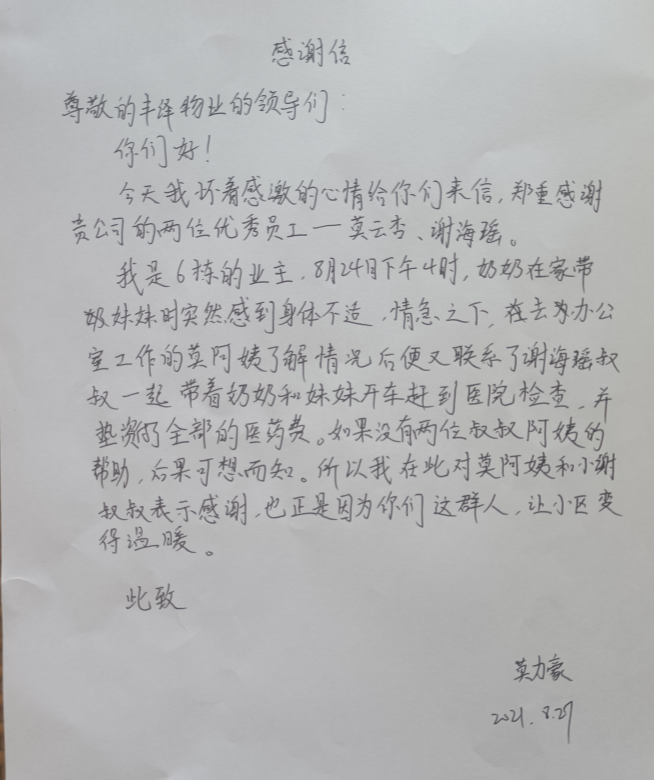 感谢信
尊敬的丰泽物业的领导们：
你们好！
今天我怀着感激的心情给你们来信，郑重感谢
贵公司的两位优秀员工一莫云杏、谢海瑶。
我是6栋的业主，8月24日下午4时，奶奶在家带
妹妹时突然感到身体不适，情急之下，在去办公
室工作的莫阿姨了解情况后便又联系了谢海瑶叔
叔一起带着奶奶和妹妹开车赶到医院检查，并
垫资了全部的医药费。如果没有两位叔叔阿姨的
帮助，后果可想而知。所以我在此对莫阿姨和小谢
叔叔表示感谢，也正是因为你们这群人，让小区变
得温暖。
此致
莫力豪
2021.8.27